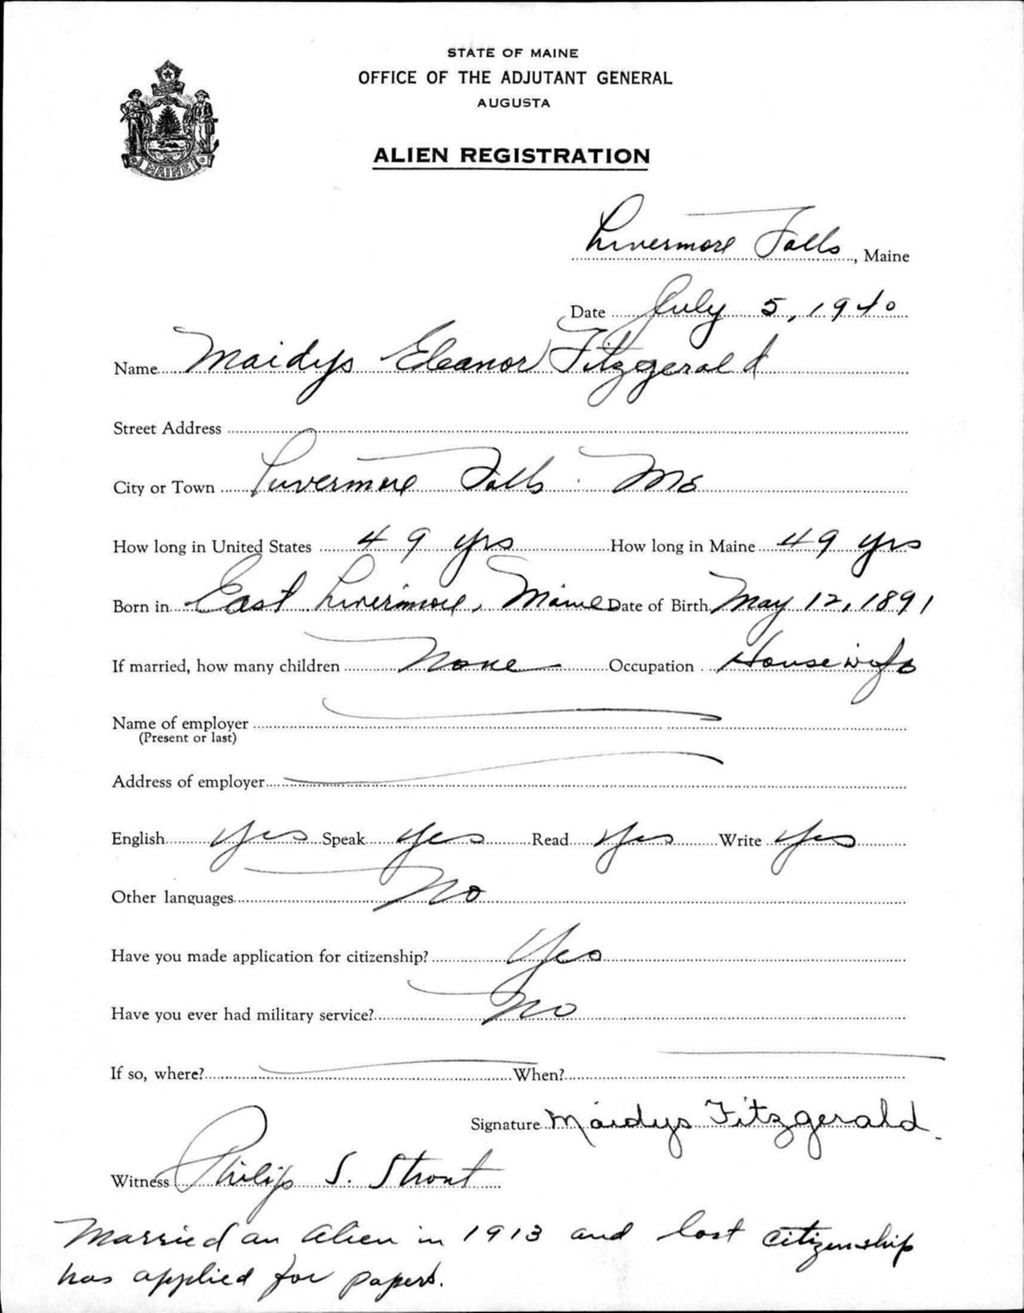 STATE OF MAINE
OFFICE OF THE ADJUTANT GENERAL
AUGUSTA
ALIEN REGISTRATION
MAINE
Livermore Falls, Maine
Date July 5, 1940
Name Maidys Eleanor Fitzgerald
Street Address
City or Town Livermore Falls Me
How long in United States 49 yrs How long in Maine 49 yrs
Born in East Livermore, Maine Date of Birth May 12, 1891
If married, how many children None Occupation Housewife
Name of employer
(Present or last)
Address of employer
English yes Speak yes Read yes Write yes
Other languages No
Have you made application for citizenship? Yes
Have you ever had military service? No
If so, where? When?
Signature Maidys Fitzgerald.
Witness Philip S. Strout
Married an alien in 1913 and lost citizenship
has applied for papers.